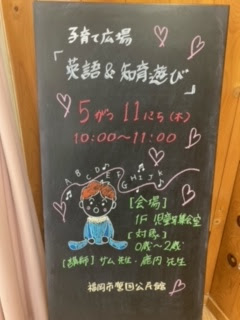 子育て広場
「英語&知育遊び」
5がつ11にち(木)
10:00〜11:00
A B C D E F G H I J K
[会場]
1F 児童等集会室
[対象]
0歳〜2歳
[講師] サム先生・鹿内先生
福岡市警固公民館